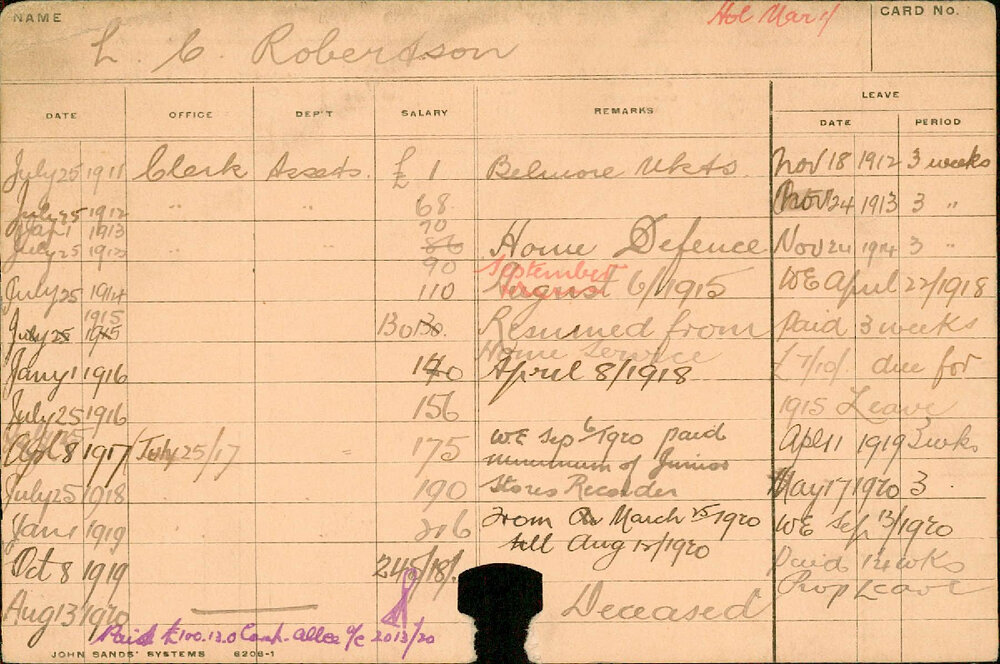 NAME
Hol Mar 11
CARD No.
L. C. Robertson
DATE OFFICE DEP'T SALARY REMARKS LEAVE
DATE PERIOD
July 25 1911 Clerk Assets. £ 1 Belmore Mkts Nov 18 1912 3 weeks
July 25 1912 " " 68 Nov 24 1913 3 "
Jany 1 1913 70
July 25 1913 " 86 Home Defence Nov 24 1914 3 "
90 September
July 25 1914 110 August 6/1915 WE April 22/1918
1915
July 25 1915 130 130 Resumed from Paid 3 weeks
Home Service
Jany 1 1916 140 April 8/1918 £7/10/. due for
July 25 1916 156 1915 Leave
Apl 8 1917 July 25/17 175 WE Sep 6/1920 paid Apl 11 1919 3 wks
minimum of Junior
July 25 1918 190 Stores Recorder May 17 1920 3
Jan 1 1919 206 from March 25/1920 WE Sep 13/1920
till Aug 12/1920
Oct 8 1919 245/18/. Paid 14 wks
Prop Leave
Aug 13 1920 Deceased
Paid £100.13.0 Comp. Allce a/c 2013/20
JOHN SANDS' SYSTEMS 6206-1